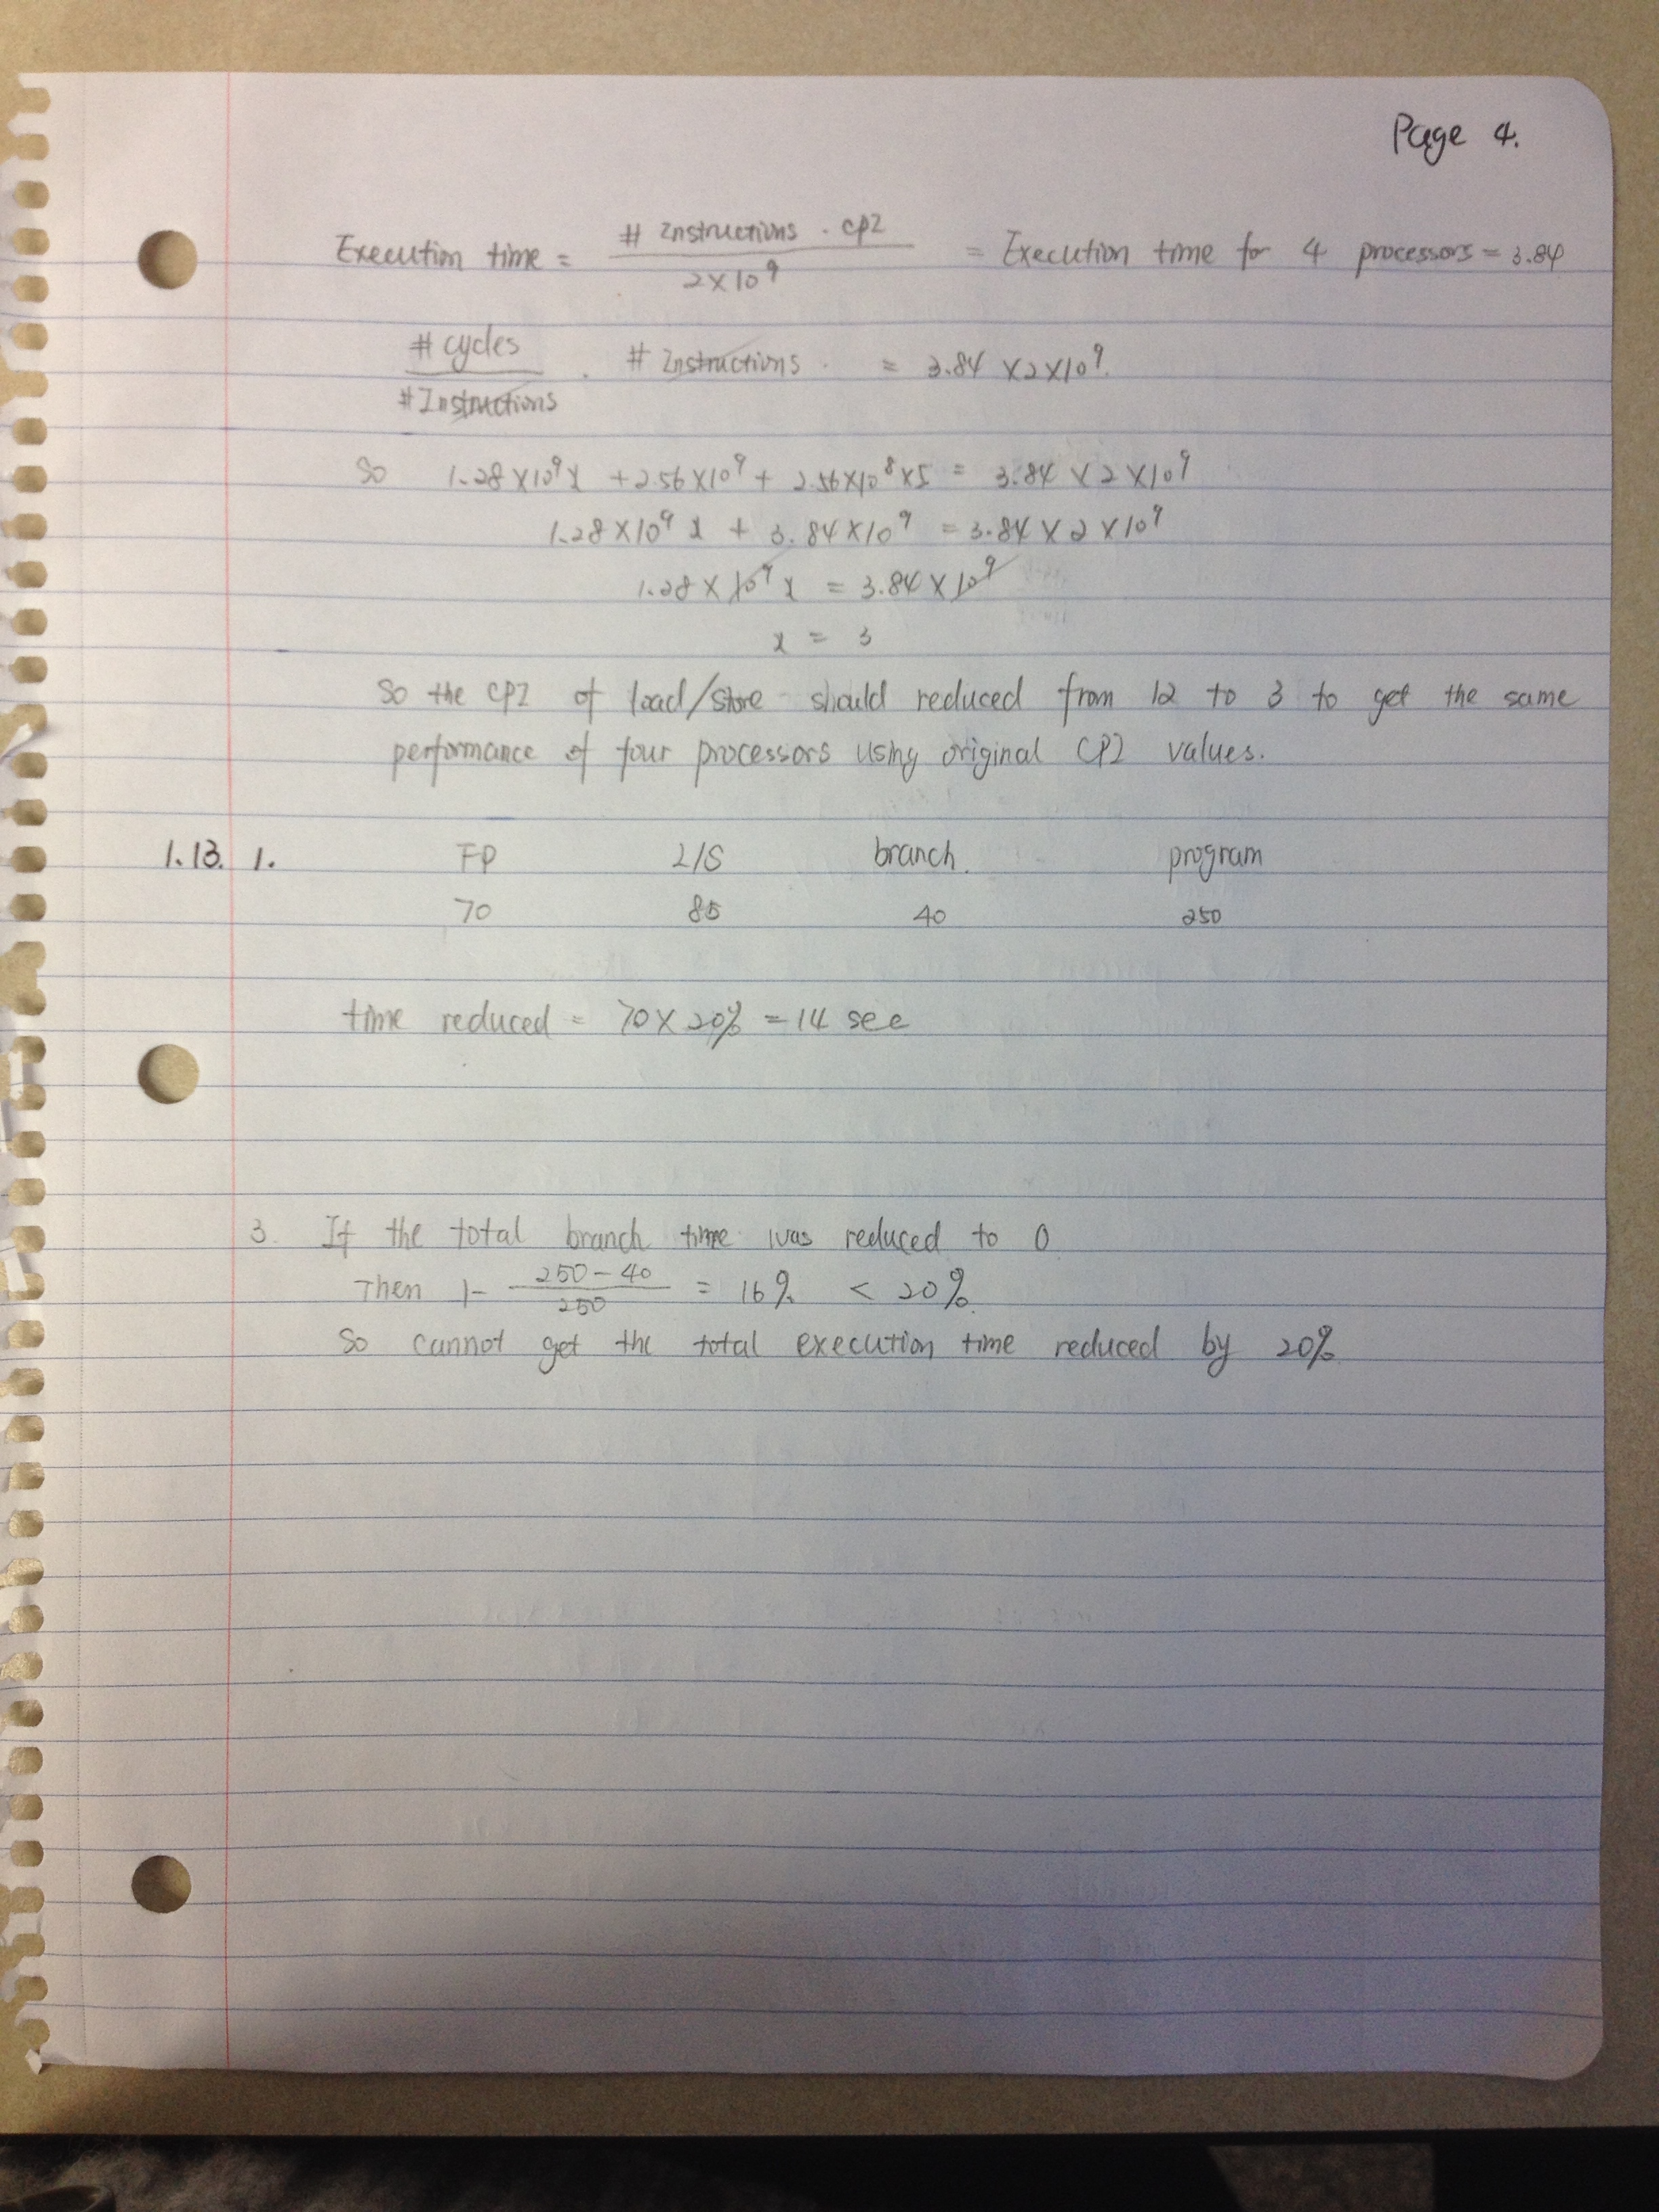 Page 4.
Execution time = # Instructions · CPI / 2×10⁹ = Execution time for 4 processors = 3.84
# cycles / # Instructions · # Instructions · = 3.84 ×2×10⁹.
So 1.28×10⁹x + 2.56×10⁹ + 2.56×10⁸×5 = 3.84 × 2 × 10⁹
1.28×10⁹ x + 3.84×10⁹ = 3.84 × 2 × 10⁹
1.28 × 10⁹ x = 3.84 × 10⁹
x = 3
So the CPI of load/store should reduced from 12 to 3 to get the same
performance of four processors using original CPI values.
1.13. 1. FP L/S branch. program
70 85 40 250
time reduced = 70 × 20% = 14 sec
3. If the total branch time was reduced to 0
Then 1 - 250-40 / 250 = 16% < 20%.
So cannot get the total execution time reduced by 20%